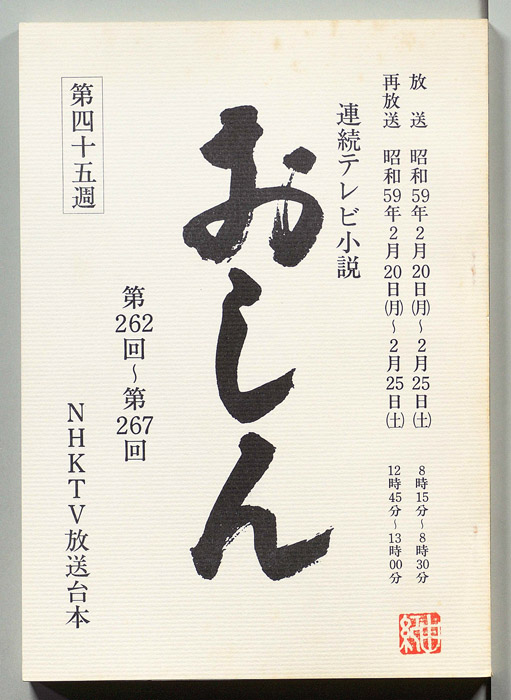 放　送　昭和59年2月20日(月)～2月25日(土)　8時15分～8時30分
再放送　昭和59年2月20日(月)～2月25日(土)　12時45分～13時00分
連続テレビ小説
おしん
第262回～第267回
第四十五週
NHKTV放送台本